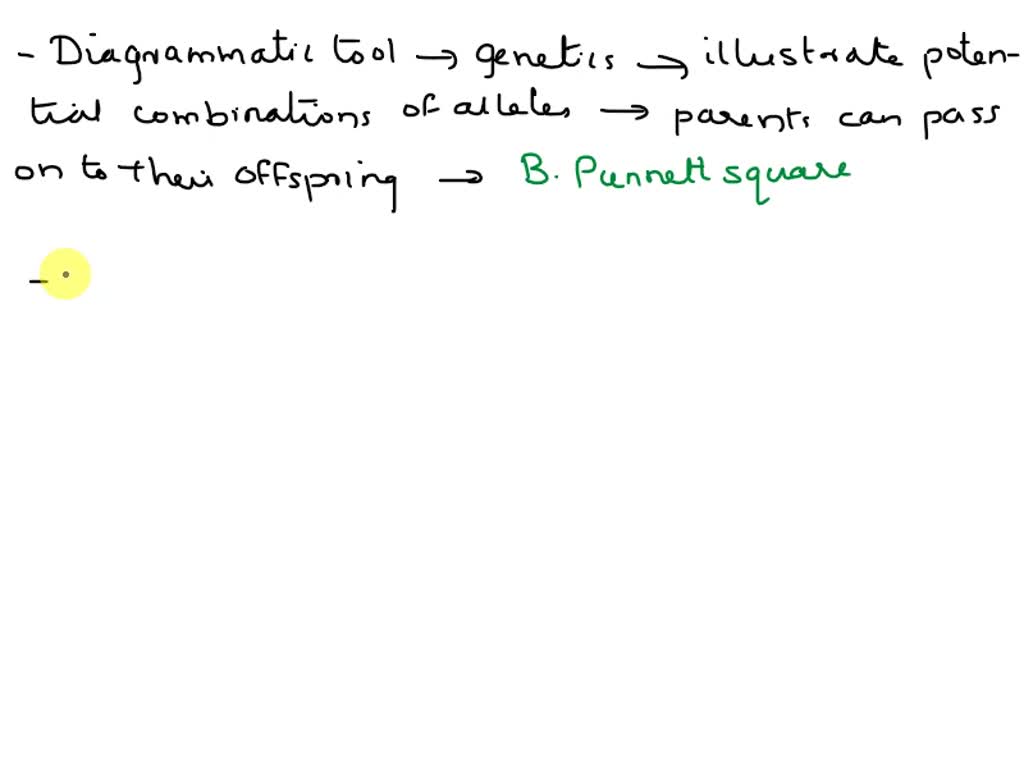 - Diagrammatic tool → genetics → illustrate poten-
tial combinations of alleles → parents can pass
on to their offspring → B. Punnett square
-